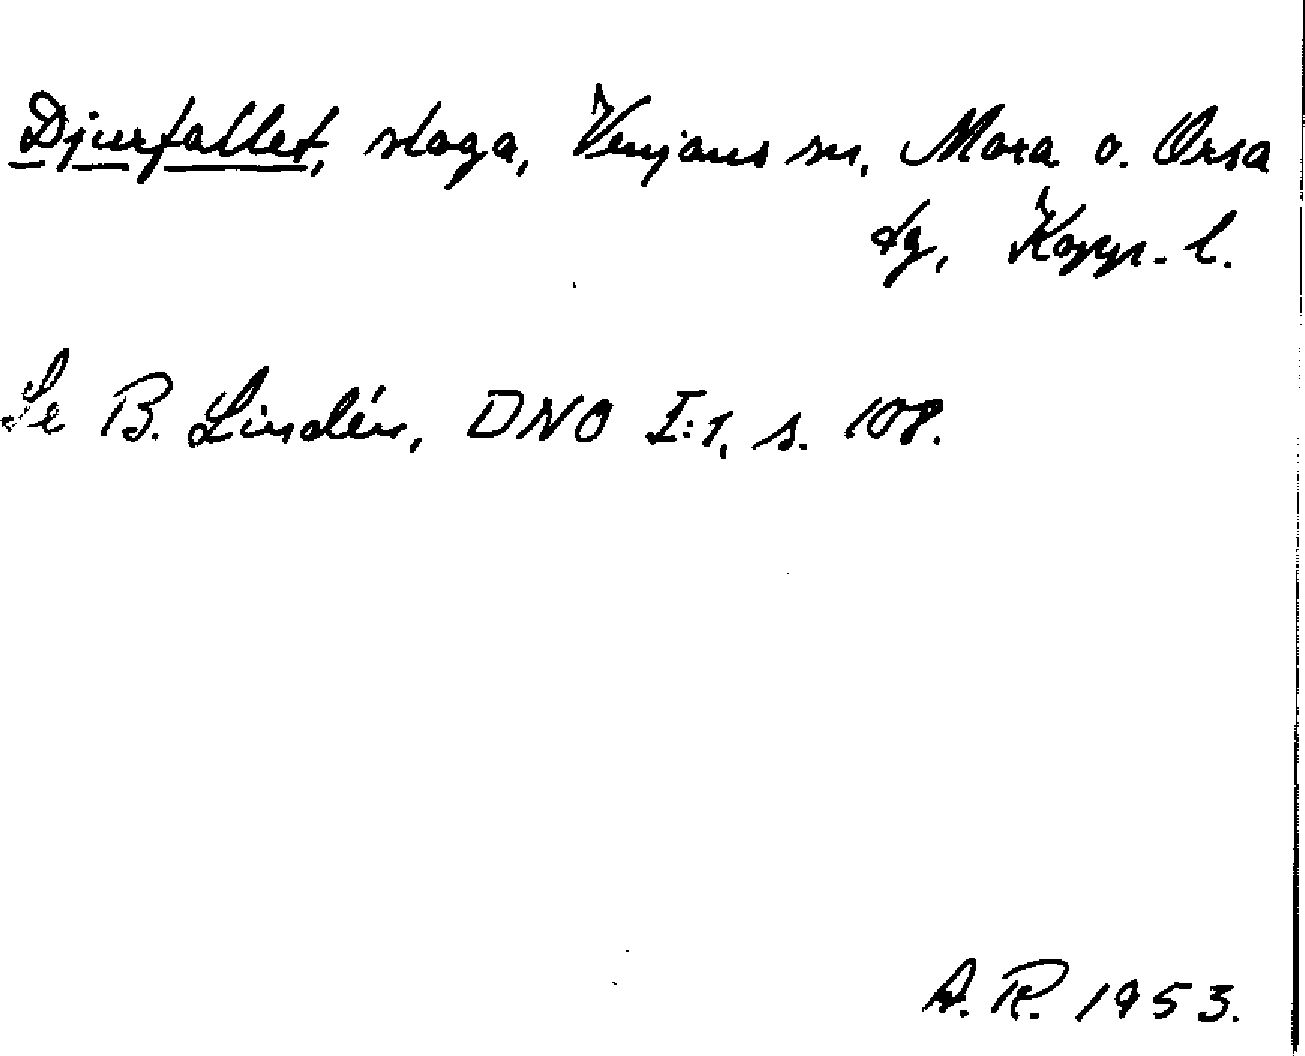 Djurfallet, sloga, Venjans sn, Mora o. Orsa
tg, Kopp. l.
Se B. Lindén, DNO I:1, s. 108.
A. R. 1953.